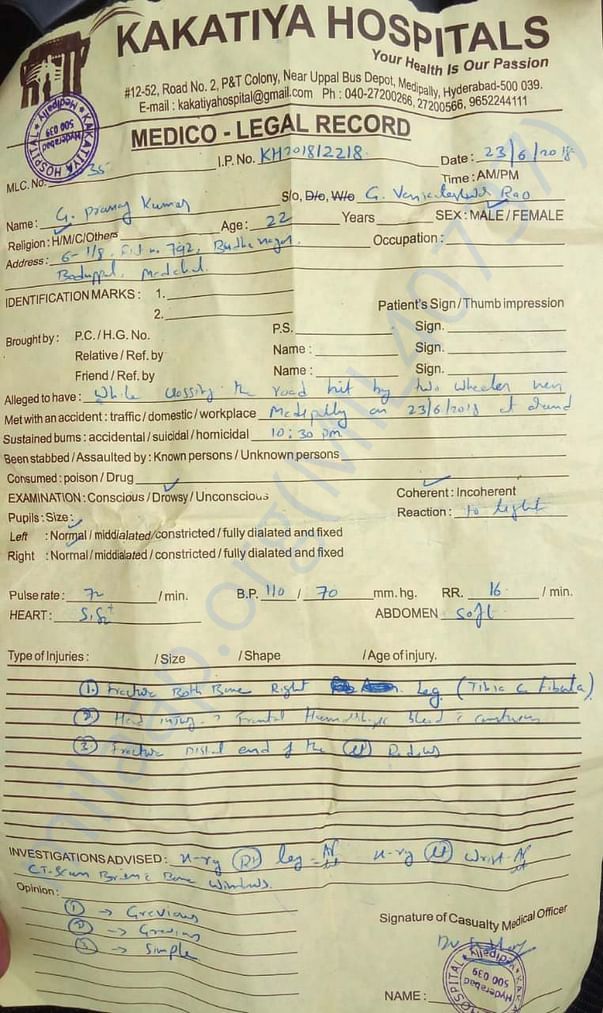 KAKATIYA HOSPITALS
Your Health Is Our Passion
#12-52, Road No. 2, P&T Colony, Near Uppal Bus Depot, Medipally, Hyderabad-500 039.
E-mail : kakatiyahospital@gmail.com Ph : 040-27200266, 27200566, 9652244111
KAKATIYA HOSPITAL Hyderabad 500 039 Medipally
MEDICO - LEGAL RECORD
MLC. No. 35 I.P. No. KH201812218 Date : 23/6/2018
Time : AM/PM
Name : G. Pranay Kumar S/o, D/o, W/o G. Venkateshwar Rao
Religion : H/M/C/Others Age : 22 Years SEX : MALE / FEMALE
Address : 6-1/8, 792, Budha nagar, Occupation :
Boduppal, Medchal.
IDENTIFICATION MARKS : 1.
2.
Patient's Sign / Thumb impression
Brought by : P.C. / H.G. No. P.S. Sign.
Relative / Ref. by Name : Sign.
Friend / Ref. by Name : Sign.
Alleged to have : While crossing the road hit by two wheeler near
Met with an accident : traffic / domestic / workplace Medipally on 23/6/2018 at around
Sustained burns : accidental / suicidal / homicidal 10:30 pm
Been stabbed / Assaulted by : Known persons / Unknown persons
Consumed : poison / Drug
EXAMINATION : Conscious / Drowsy / Unconscious Coherent : Incoherent
Pupils : Size : Reaction : to light
Left : Normal / middialated / constricted / fully dialated and fixed
Right : Normal / middialated / constricted / fully dialated and fixed
Pulse rate : 72 / min. B.P. 110 / 70 mm. hg. RR. 16 / min.
HEART : S1S2+ ABDOMEN soft
Type of Injuries : / Size / Shape / Age of injury.
① Fracture Both Bone Right Leg (Tibia & Fibula)
② Head injury Frontal Haemorrhagic contusion
③ Fracture Distal end of the Lt Radius
INVESTIGATIONS ADVISED : x-ray Rt leg - AP x-ray Lt wrist - AP
CT-Scan Brain Bone Windows.
Opinion :
① → Grevious
② → Grevious
③ → Simple
Signature of Casualty Medical Officer
Dr
NAME :
HOSPITAL Medipally Hyderabad 500 039
milaap.org